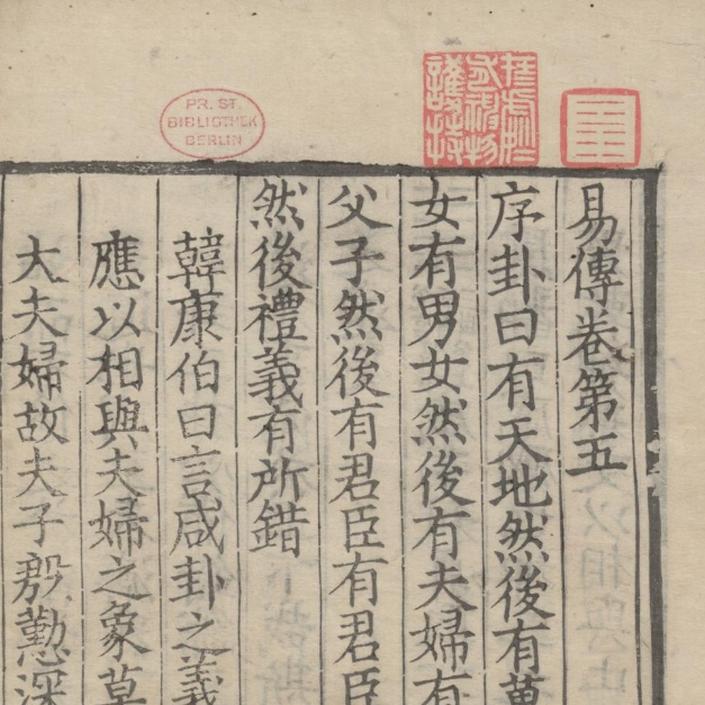 易傳卷第五
序卦曰有天地然後有萬
女有男女然後有夫婦有
父子然後有君臣有君臣
然後禮義有所錯
韓康伯曰言咸卦之義
應以相與夫婦之象莫
大夫婦故夫子殷勤深
PR. ST.
BIBLIOTHEK
BERLIN